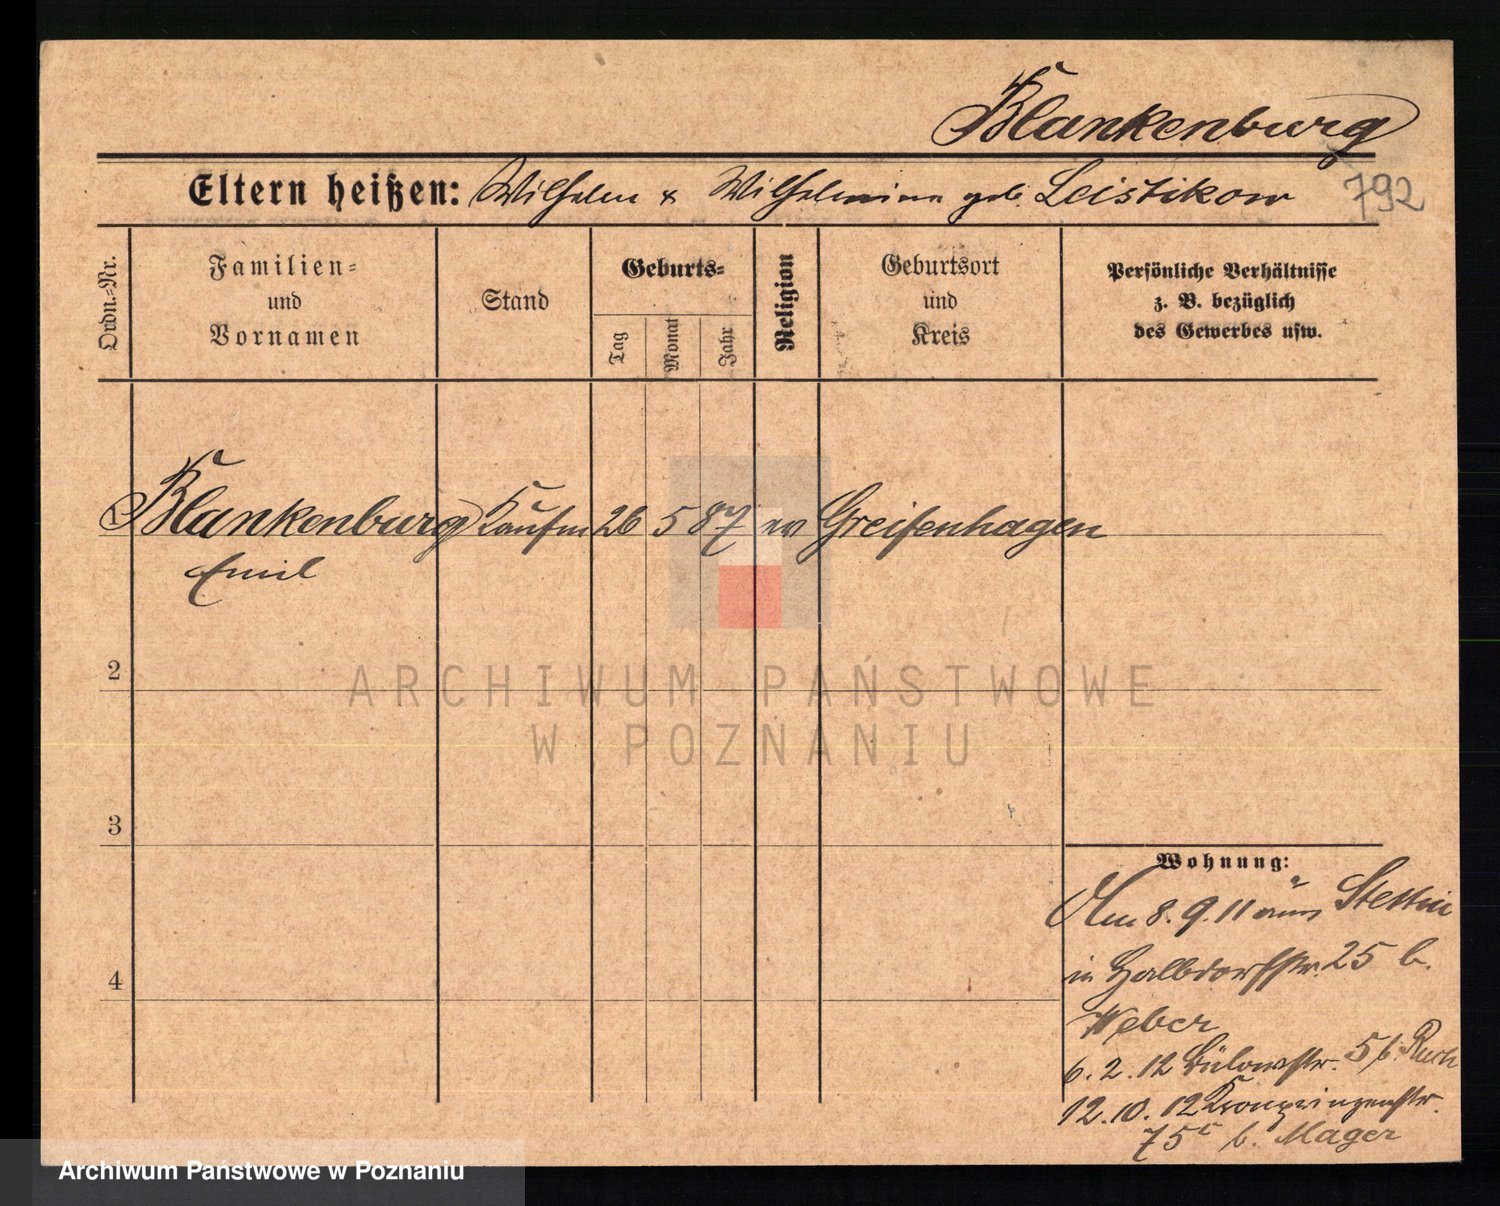 Blankenburg
Eltern heißen: Wilhelm & Wilhelmine geb. Leistikow 792
Ordn.-Nr.
Familien=
und
Vornamen
Stand
Geburts=
Tag
Monat
Jahr
Religion
Geburtsort
und
Kreis
Persönliche Verhältnisse
z. B. bezüglich
des Gewerbes usw.
1 Blankenburg Kaufm 26 5 87 ev Greifenhagen
Emil
2
ARCHIWUM PAŃSTWOWE
W POZNANIU
3
4
Wohnung:
Am 8.9.11 aus Stettin
in Halbdorfstr. 25 b.
Weber
6.2.12 Bülowstr. 5 b.
12.10.12 Kronprinzenstr.
75c b. Mager
Archiwum Państwowe w Poznaniu